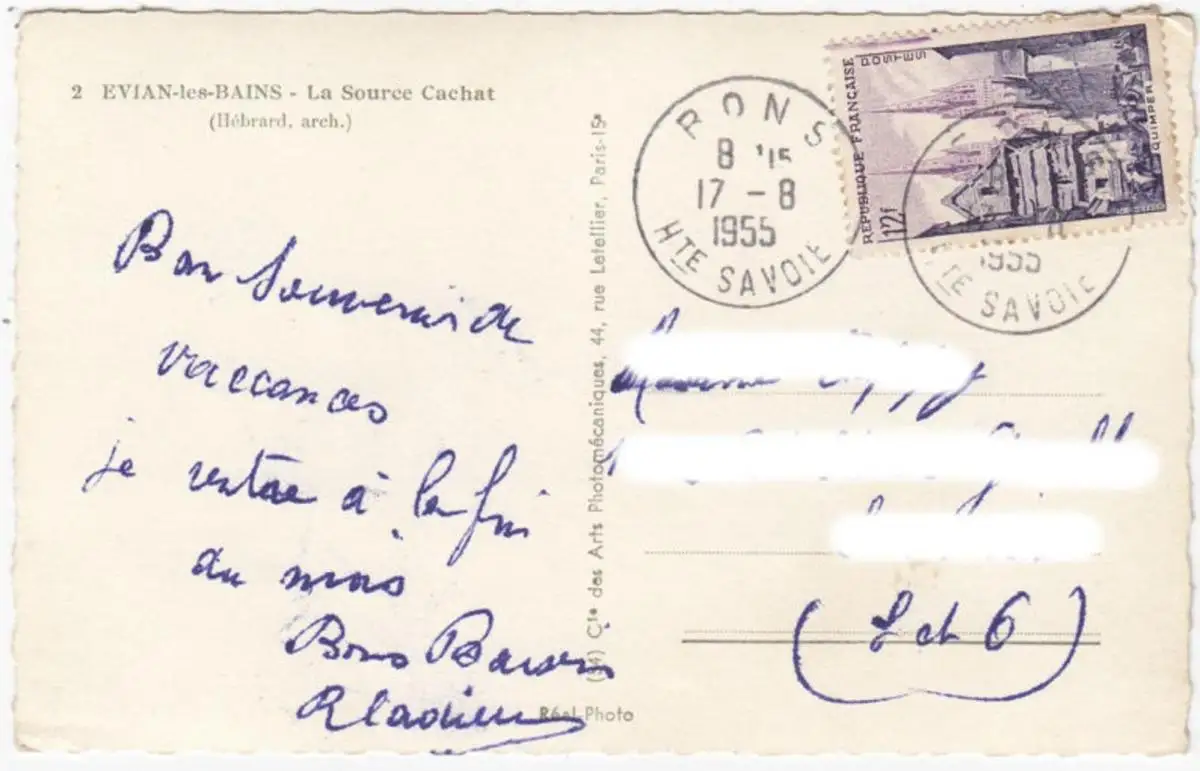 2 EVIAN-les-BAINS - La Source Cachat
(Hébrard, arch.)
Bon Souvenir de
vaccances
je rentre à la fin
du mois
Bons Baisers
Cie des Arts Photomécaniques, 44, rue Letellier, Paris-15e
Réel-Photo
BONS
8 H 15
17 - 8
1955
HTE SAVOIE
RÉPUBLIQUE FRANÇAISE
POSTES
QUIMPER
12f
1955
HTE SAVOIE
Madame
(S et O)